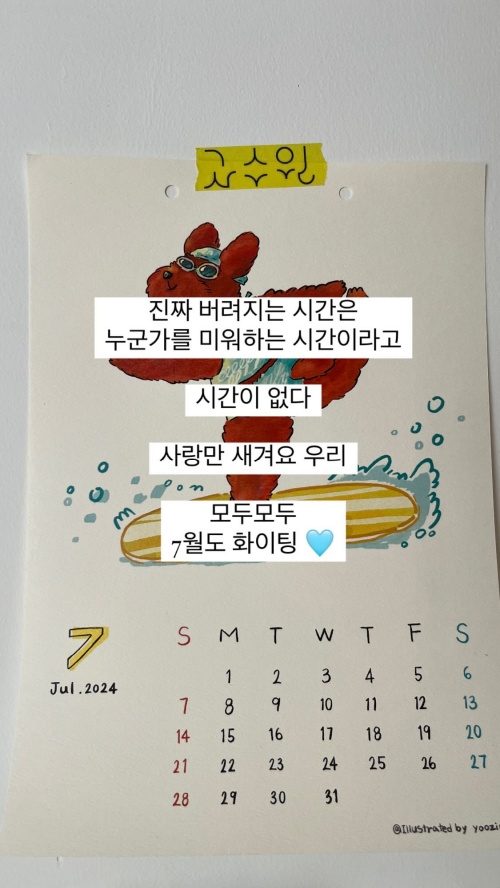 진짜 버려지는 시간은
누군가를 미워하는 시간이라고
시간이 없다
사랑만 새겨요 우리
모두모두
7월도 화이팅 🩵
7
Jul.2024
S M T W T F S
1 2 3 4 5 6
7 8 9 10 11 12 13
14 15 16 17 18 19 20
21 22 23 24 25 26 27
28 29 30 31
@Illustrated by